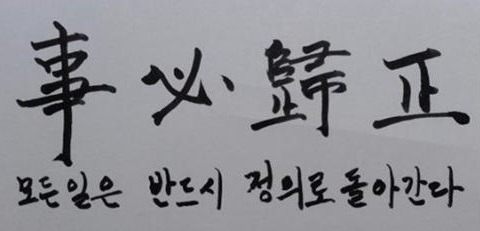 事必歸正
모든 일은 반드시 정의로 돌아간다